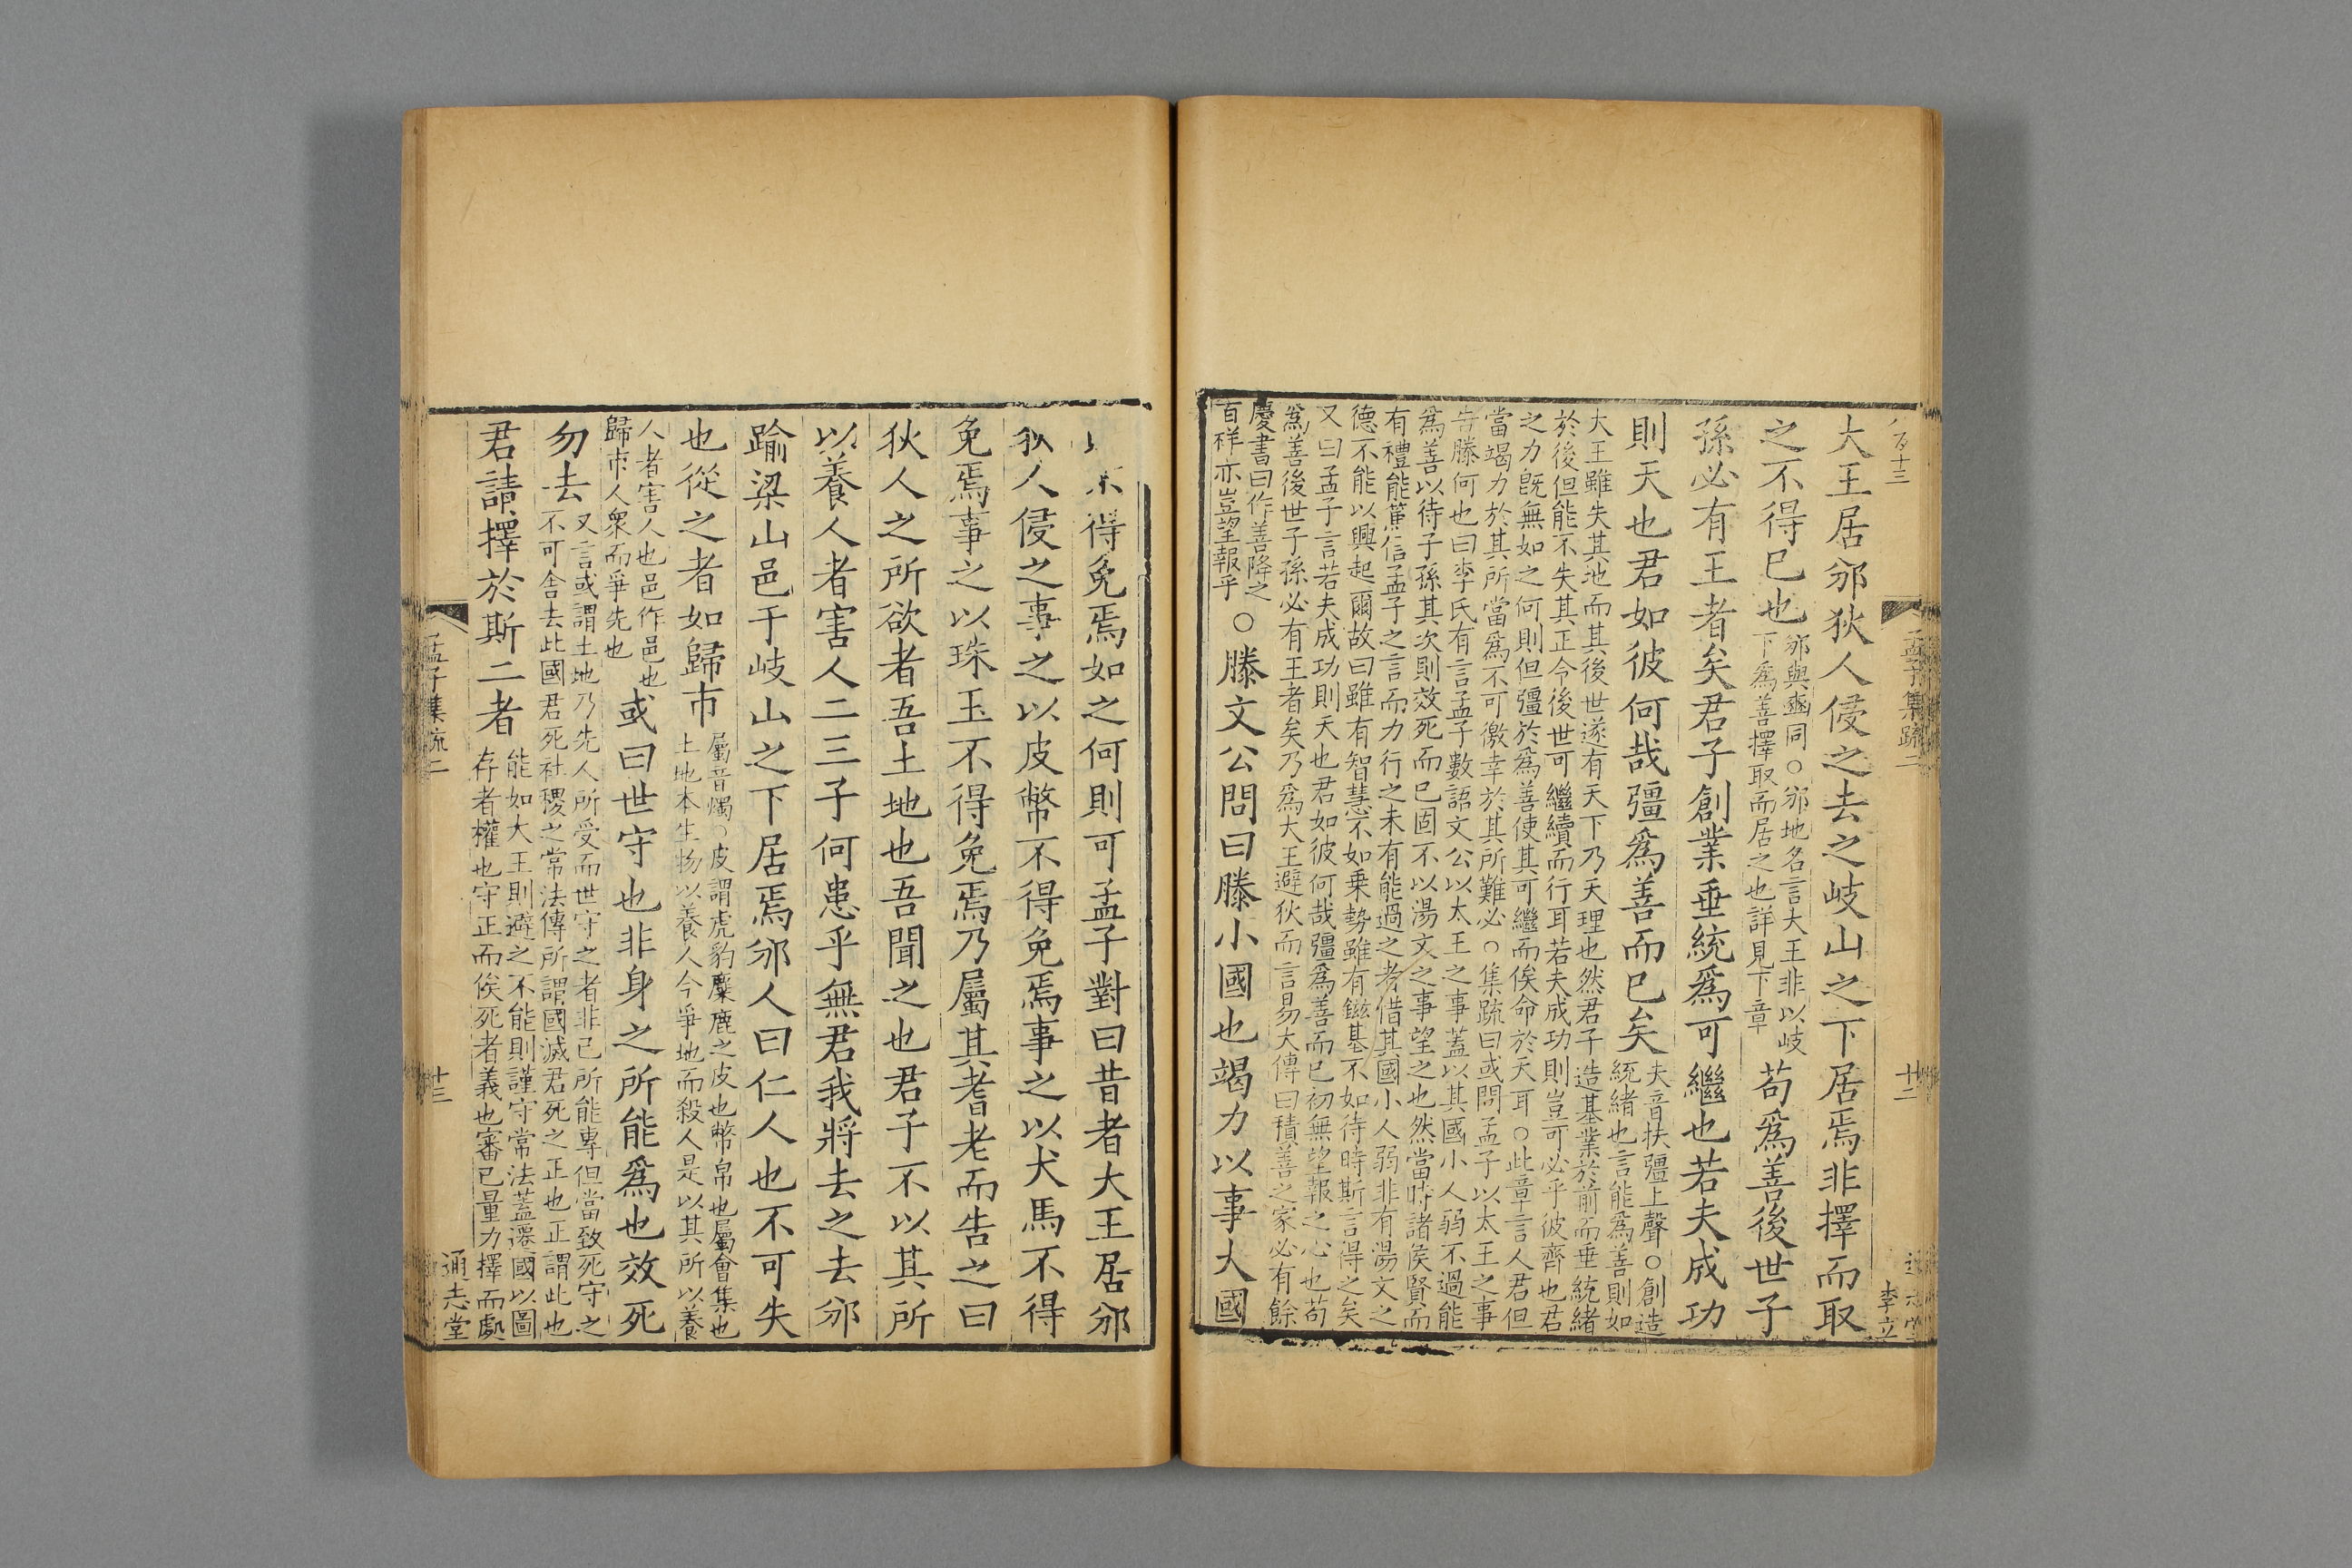 大王居邠狄人侵之去之岐山之下居焉非擇而取
之不得已也
邠與豳同○邠地名言大王非以岐
下爲善擇取而居之也詳見下章
苟爲善後世子
孫必有王者矣君子創業垂統爲可繼也若夫成功
則天也君如彼何哉彊爲善而已矣
夫音扶彊上聲○創造
統緒也言能爲善則如
大王雖失其地而其後世遂有天下乃天理也然君子造基業於前而垂統緒
於後但能不失其正令後世可繼續而行耳若夫成功則豈可必乎彼齊也君
之力旣無如之何則但彊於爲善使其可繼而俟命於天耳○此章言人君但
當竭力於其所當爲不可徼幸於其所難必○集疏曰或問孟子以太王之事
告滕何也曰李氏有言孟子數語文公以太王之事蓋以其國小人弱不過能
爲善以待子孫其次則效死而已固不以湯文之事望之也然當時諸侯賢而
有禮能篤信孟子之言而力行之未有能過之者借其國小人弱非有湯文之
德不能以興起爾故曰雖有智慧不如乘勢雖有鎡基不如待時斯言得之矣
又曰孟子言若夫成功則天也君如彼何哉彊爲善而已初無望報之心也苟
爲善後世子孫必有王者矣乃爲大王避狄而言易大傳曰積善之家必有餘
慶書曰作善降之
百祥亦豈望報乎
○滕文公問曰滕小國也竭力以事大國
孟子集疏二
十二
李立
得免焉如之何則可孟子對曰昔者大王居邠
狄人侵之事之以皮幣不得免焉事之以犬馬不得
免焉事之以珠玉不得免焉乃屬其耆老而告之曰
狄人之所欲者吾土地也吾聞之也君子不以其所
以養人者害人二三子何患乎無君我將去之去邠
踰梁山邑于岐山之下居焉邠人曰仁人也不可失
也從之者如歸市
屬音燭○皮謂虎豹麋鹿之皮也幣帛也屬會集也
土地本生物以養人今爭地而殺人是以其所以養
人者害人也邑作邑也
歸市人衆而爭先也
或曰世守也非身之所能爲也效死
勿去
又言或謂土地乃先人所受而世守之者非己所能專但當致死守之
不可舍去此國君死社稷之常法傳所謂國滅君死之正也正謂此也
君請擇於斯二者
能如大王則避之不能則謹守常法蓋遷國以圖
存者權也守正而俟死者義也審己量力擇而處
孟子集疏二
十三
通志堂